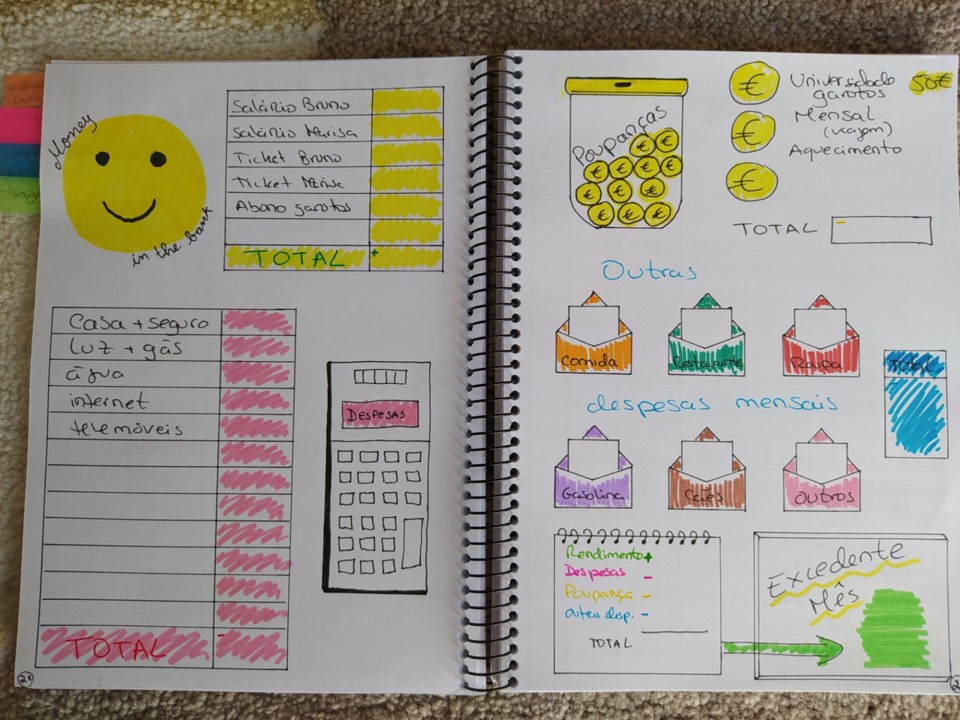 Money
in the bank
Salário Bruno
Salário Marisa
Ticket Bruno
Ticket Marisa
Abono garotos
TOTAL +
Casa + seguro
Luz + gás
água
internet
telemóveis
TOTAL -
DESPESAS
21
POUPANÇAS
€ Universidade 50€
garotos
€ Mensal
(viagem)
€ Aquecimento
TOTAL -
Outras
Comida
Restaurante
Roupa
TOTAL
despesas mensais
Gasolina
Cães
Outros
Rendimento +
Despesas -
Poupança -
outras desp. -
TOTAL
Excedente
Mês